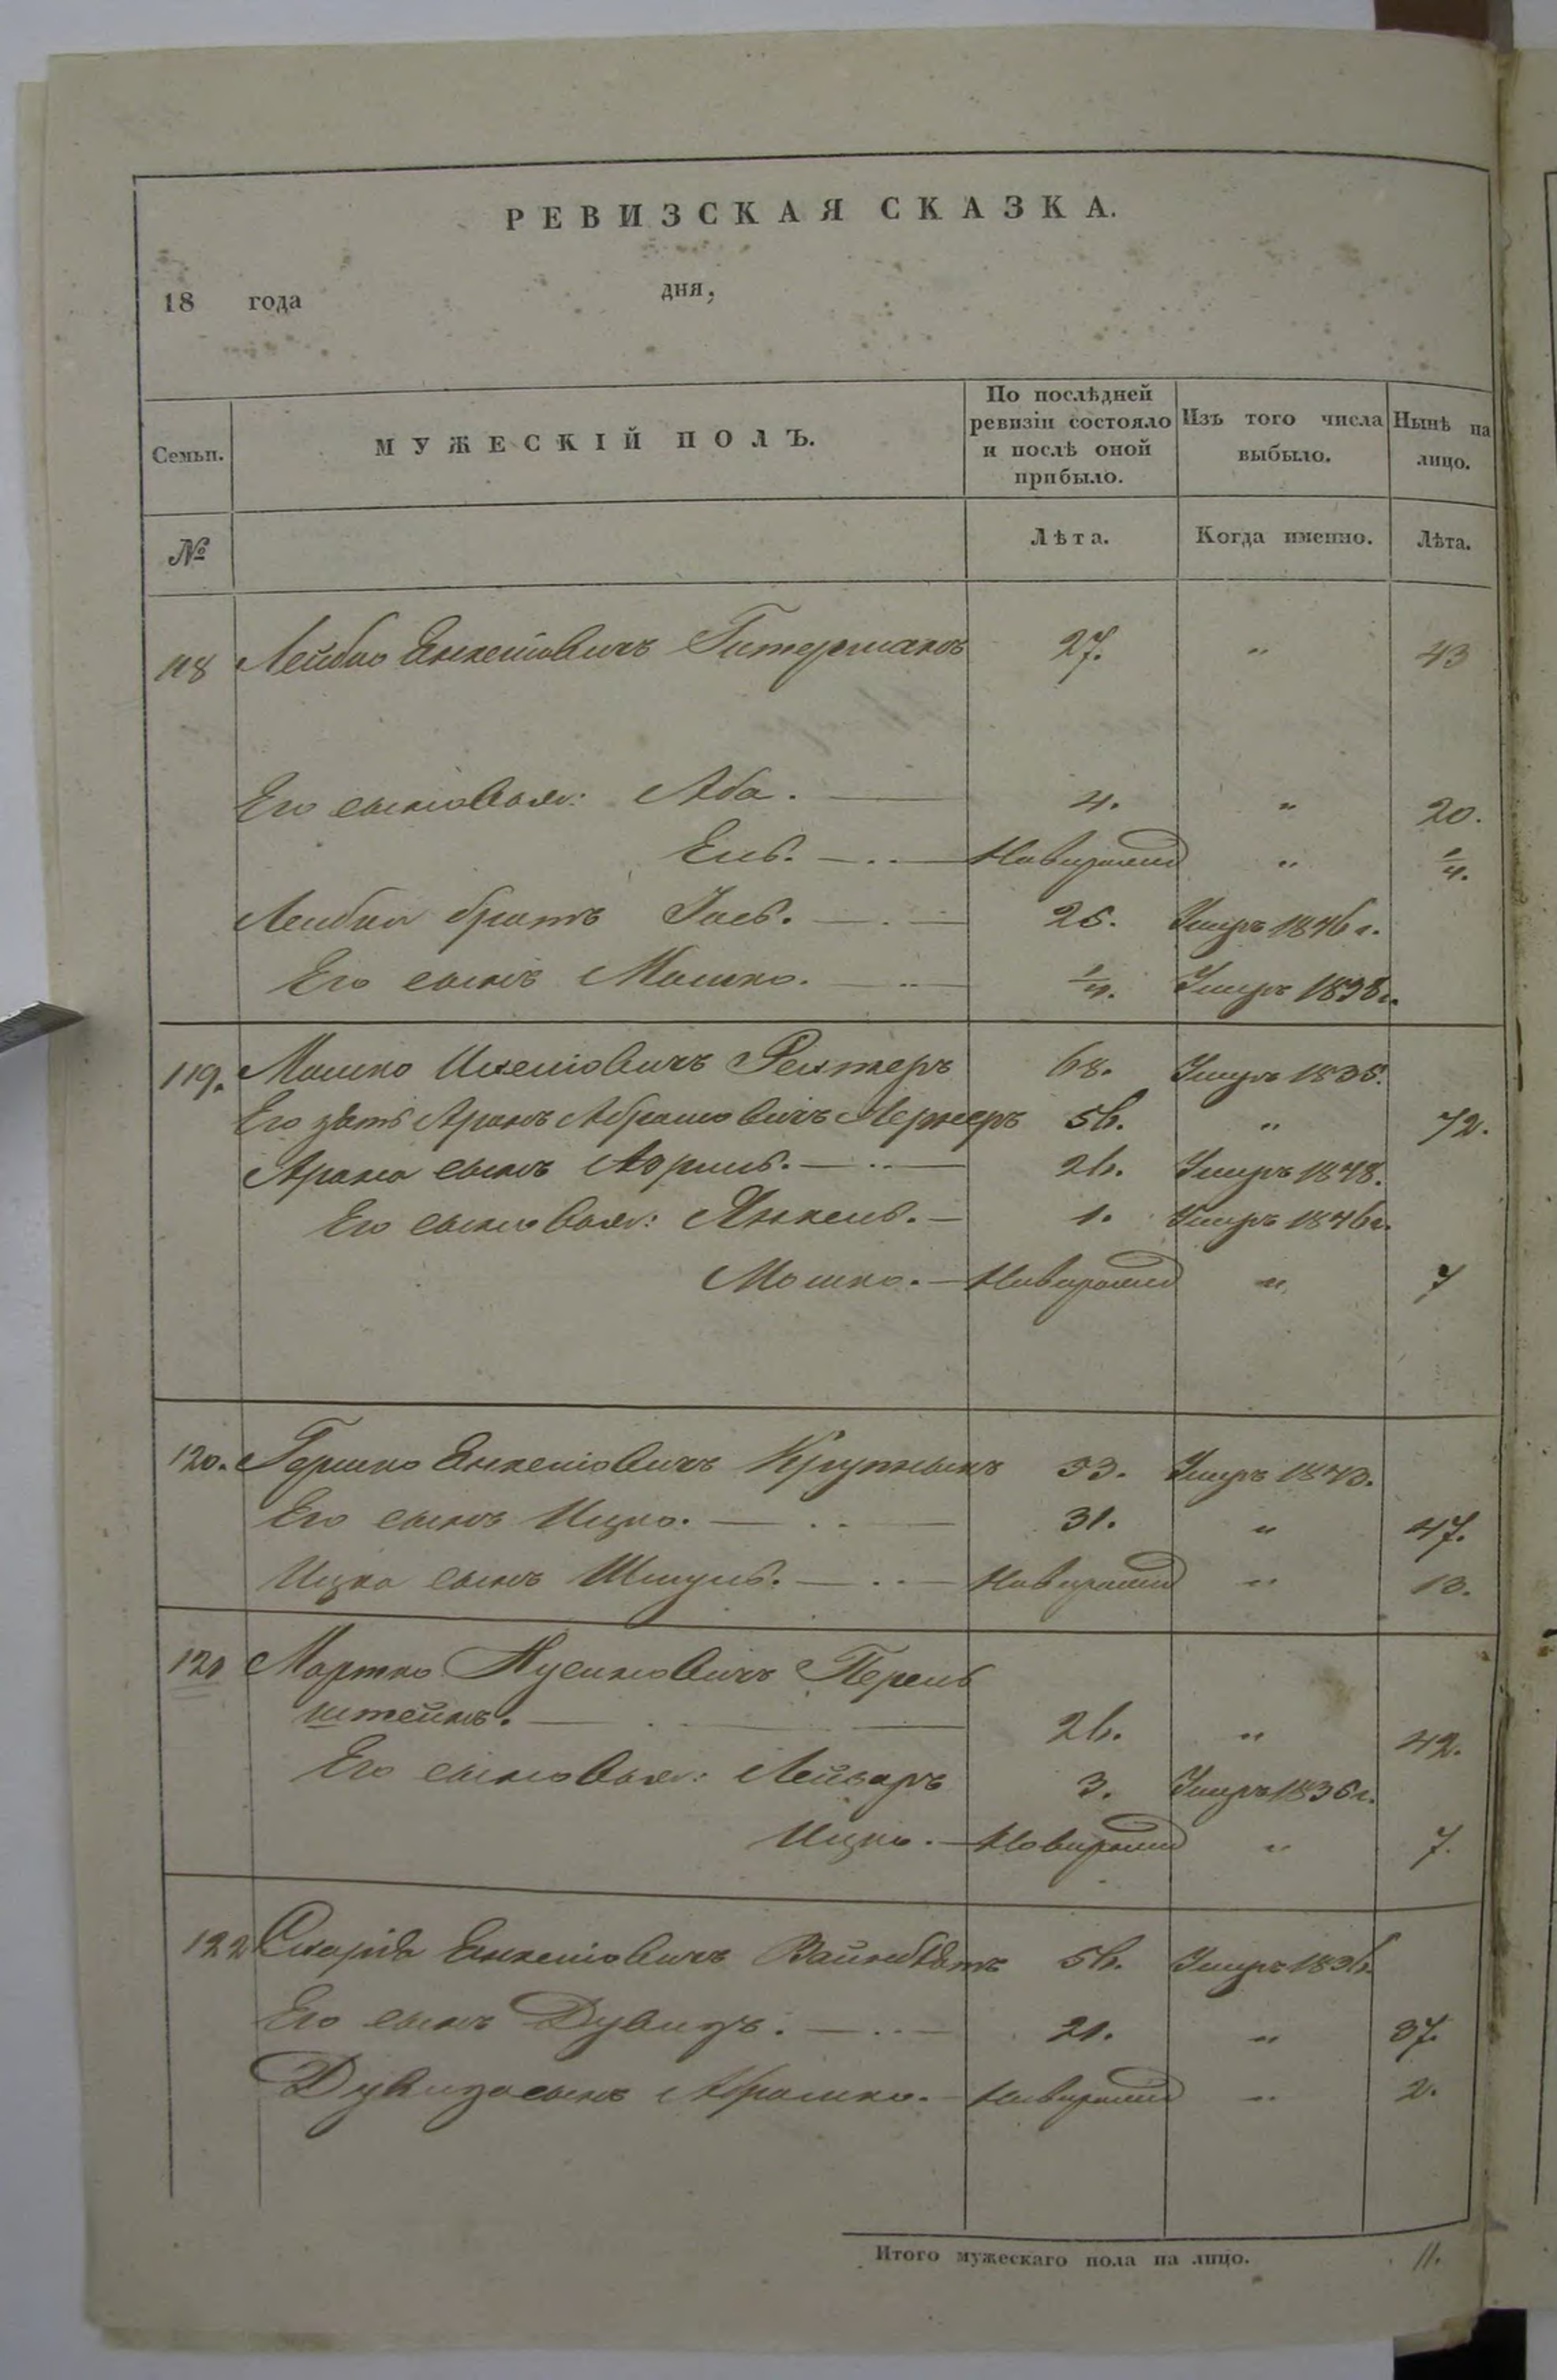 РЕВИЗСКАЯ СКАЗКА.
18 года дня,
Семьи. МУЖЕСКІЙ ПОЛЪ. По послѣдней ревизіи состояло и послѣ оной прибыло. Изъ того числа выбыло. Нынѣ на лицо.
№ Лѣта. Когда именно. Лѣта.
118 Лейбко Янкелювичъ Гитерманъ 27. " 43
Его сыновья: Аба. 4. " 20.
Ель. Новорожд " 1/4.
Лейбки братъ Іось. 25. Умеръ 1846 г.
Его сынъ Мошко. 1/4. Умеръ 1838 г.
119. Мошко Мошко 68. Умеръ 1835.
Его зять Аронъ Абрамовичъ Лернеръ 56. " 72.
Арона сынъ 26. Умеръ 1848.
Его сыновья: Янкель. 1. Умеръ 1846 г.
Мошко. Новорожд " 7
120. Гершко Янкелювичъ Крупникъ 33. Умеръ 1843.
Его сынъ Ицко. 31. " 47.
Ицка сынъ Шмуль. Новорожд " 13.
121 Мортко Нусиновичъ Перель
штейнъ. 26. " 42.
Его сыновья: Лейзаръ 3. Умеръ 1836 г.
Ицко. Новорожд " 7.
122 Янкелювичъ Вайнблатъ 56. Умеръ 1836.
Его сынъ Дувидъ. 21. " 37.
Дувида сынъ Абрамко. Новорожд " 2.
Итого мужескаго пола на лицо. 11.